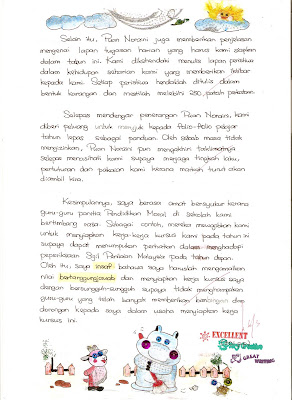 Selain itu, Puan Noraini juga memberikan penjelasan
mengenai lapan tugasan harian yang harus kami siapkan
dalam tahun ini. Kami dikehendaki menulis lapan peristiwa
dalam kehidupan seharian kami yang memberikan
kepada kami. Setiap peristiwa hendaklah ditulis dalam
bentuk karangan dan mestilah melebihi 250 patah perkataan.
Selepas mendengar penerangan Puan Noraini, kami
diberi peluang untuk merujuk kepada folio-folio pelajar
tahun lepas sebagai panduan. Oleh sebab masa tidak
mengizinkan, Puan Noraini pun mengakhiri taklimatnya
selepas menasihati kami supaya menjaga tingkah laku,
pertuturan dan pakaian kami kerana markah turut akan
diambil kira.
Kesimpulannya, saya berasa amat bersyukur kerana
guru-guru panitia Pendidikan Moral di sekolah kami
bertimbang rasa. Sebagai contoh, mereka mewajibkan kami
untuk menyiapkan kerja-kerja kursus kami pada tahun ini
supaya dapat menumpukan perhatian dalam menghadapi
peperiksaan Sijil Pelajaran Malaysia pada tahun depan.
Oleh itu, saya insaf bahawa saya haruslah mengamalkan
nilai bertanggungjawab dan menyiapkan kerja kursus saya
dengan bersungguh-sungguh supaya tidak menghampakan
guru-guru yang telah banyak memberikan bimbingan dan
dorongan kepada saya dalam usaha menyiapkan kerja
kursus ini.
EXCELLENT
GREAT